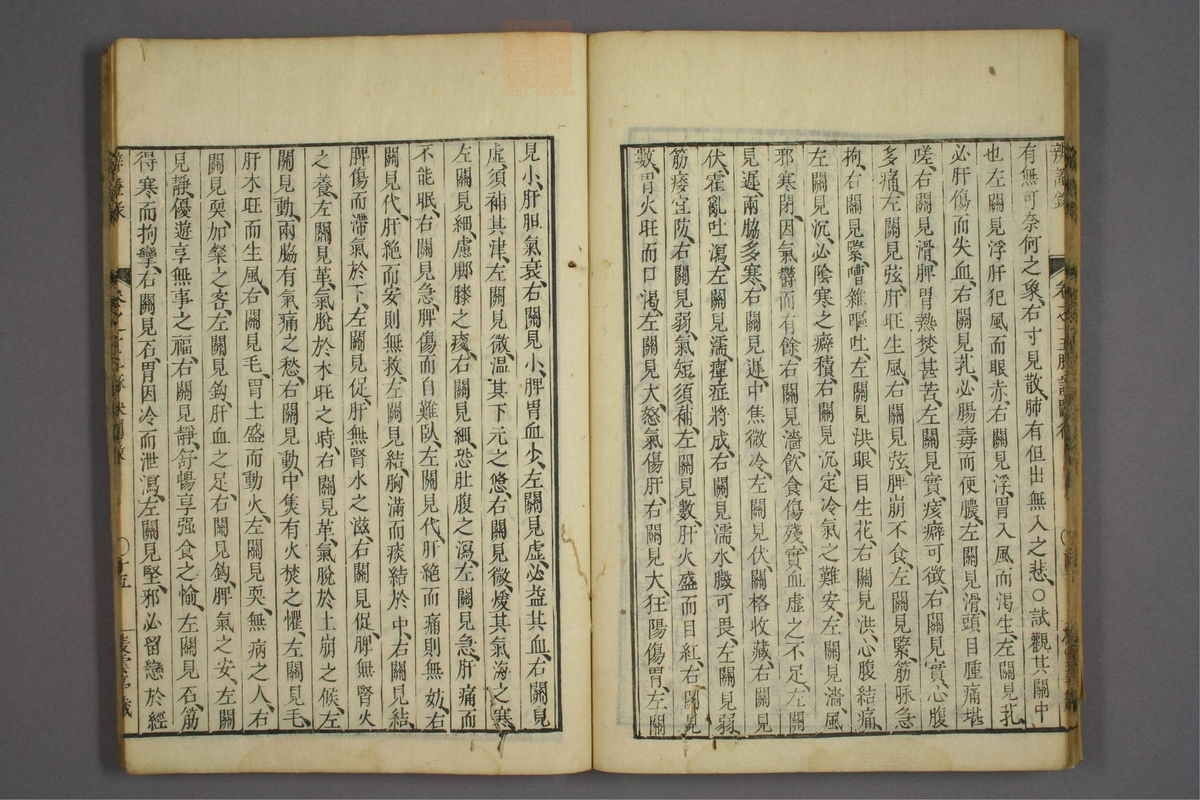 有無可奈何之象、右寸見散、肺有但出無入之悲、○試觀其關中
也左關見浮肝犯風而眼赤、右關見浮、胃入風而渴生、左關見芤
必肝傷而失血、右關見芤、必腸毒而便膿、左關見滑、頭目腫痛堪
嗟、右關見滑、脾胃熱焚甚苦、左關見實、痃癖可徵、右關見實、心腹
多痛、左關見弦、肝旺生風、右關見弦、脾崩不食、左關見緊、筋脉急
拘、右關見緊、嘈雜嘔吐、左關見洪、眼目生花、右關見洪、心腹結痛、
左關見沉、必陰寒之癖積、右關見沉、定冷氣之難安、左關見濇、風
邪寒閉、因氣鬱而有餘、右關見濇、飲食傷殘、實血虛之不足、左關
見遲、兩脇多寒、右關見遲、中焦微冷、左關見伏、關格收藏、右關見
伏、霍亂吐瀉、左關見濡、癉症將成、右關見濡、水臌可畏、左關見弱、
筋痿宜防、右關見弱、氣短須補、左關見數、肝火盛而目紅、右關見
數、胃火旺而口渴、左關見大、怒氣傷肝、右關見大、狂陽傷胃、左關
見小、肝胆氣衰、右關見小、脾胃血少、左關見虛、必益其血、右關見
虛、須補其津、左關見微、溫其下元之憊、右關見微、煖其氣海之寒
左關見細、慮䐃膝之痠、右關見細、恐肚腹之瀉、左關見急、肝痛而
不能眠、右關見急、脾傷而自難臥、左關見代、肝絶而痛則無妨、右
關見代、肝絶而安則無救、左關見結、胸滿而痰結於中、右關見結、
脾傷而滯氣於下、左關見促、肝無腎水之滋、右關見促、脾無腎火
之養、左關見革、氣脫於木旺之時、右關見革、氣脫於土崩之候、左
關見動、兩脇有氣痛之愁、右關見動、中焦有火焚之懼、左關見毛、
肝木旺而生風、右關見毛、胃土盛而動火、左關見耎、無病之人、右
關見耎、加餐之客、左關見鈎、肝血之足、右關見鈎、脾氣之安、左關
見靜、優遊享無事之福、右關見靜、舒暢享强食之愉、左關見石、筋
得寒而拘攣、右關見石、胃因冷而泄瀉、左關見堅、邪必留戀於經